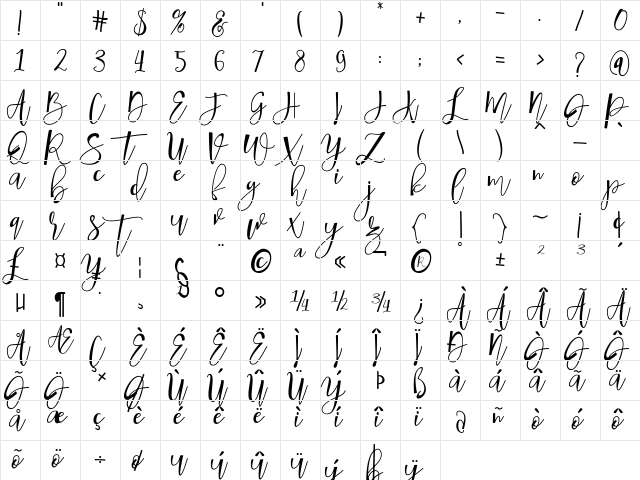 ! " # $ % & ' ( ) * + , - . / 0
1 2 3 4 5 6 7 8 9 : ; < = > ? @
A B C D E F G H I J K L M N O P
Q R S T U V W X Y Z [ \ ] ^ _ `
a b c d e f g h i j k l m n o p
q r s t u v w x y z { | } ~ ¡ ¢
£ ¤ ¥ ¦ § ¨ © ª « ¬ ® ¯ ° ± ² ³ ´
µ ¶ · ¸ ¹ º » ¼ ½ ¾ ¿ À Á Â Ã Ä
Å Æ Ç È É Ê Ë Ì Í Î Ï Ð Ñ Ò Ó Ô
Õ Ö × Ø Ù Ú Û Ü Ý Þ ß à á â ã ä
å æ ç è é ê ë ì í î ï ð ñ ò ó ô
õ ö ÷ ø ù ú û ü ý þ ÿ